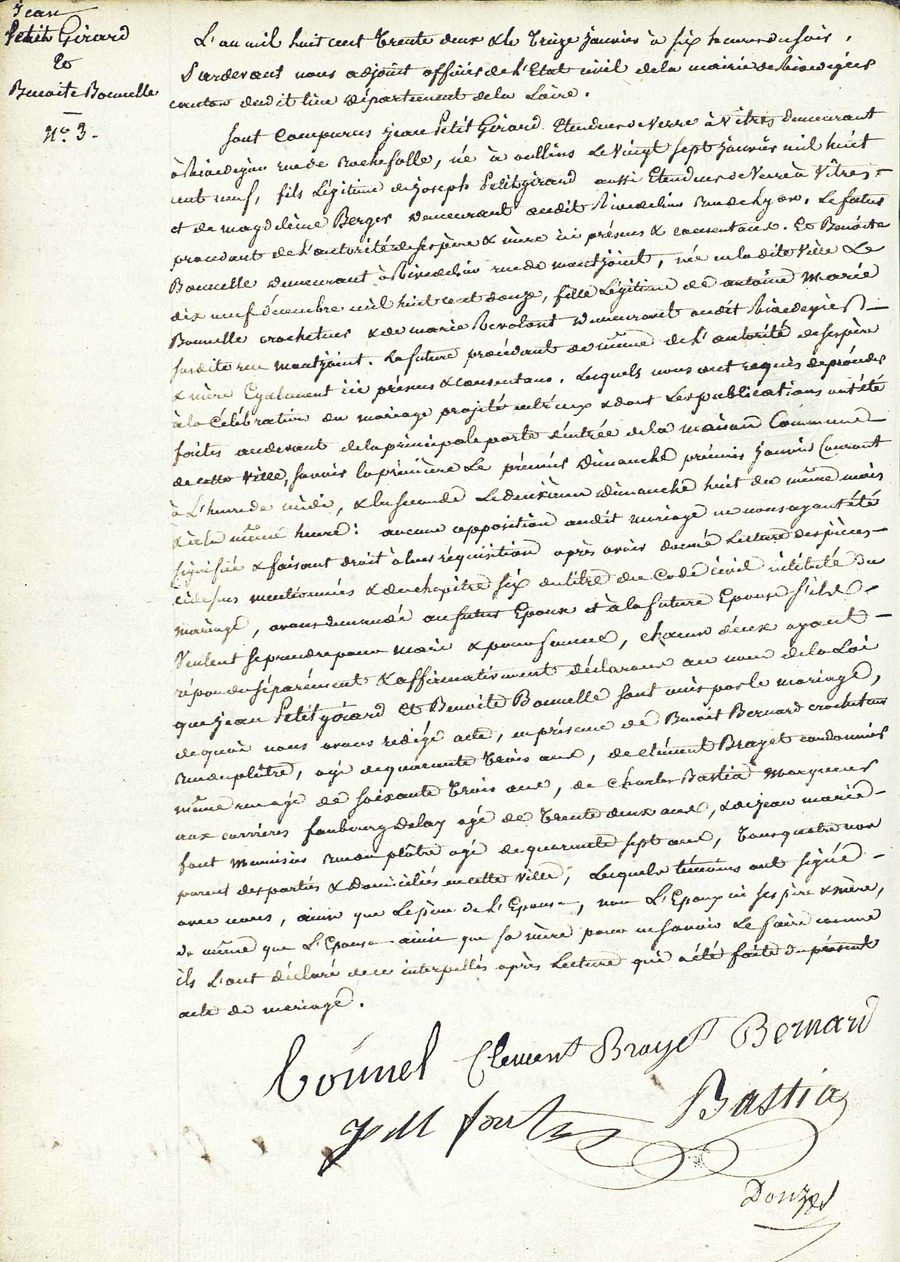 Jean
Petit Girard
&
Benoite Bonnelle
N.o 3.
L'an mil huit cent trente deux & le treize janvier à six heures du soir,
Pardevant nous adjoint officier de l'Etat civil de la mairie de Rivedegier
canton dudit lieu département de la Loire.
Sont comparus jean Petit Girard Etendeur de verre à vitres demeurant
à Rivedegier rue de Rochefolle, né à oullins le vingt sept janvier mil huit
cent neuf, fils légitime de joseph Petit girard aussi Etendeur de verre à vitres
et de magdeleine Berger demeurant audit Rivedegier rue de Lyon. Le futur
procédant de l'autorité de ses père & mère ici présens & consentans. Et Benoite
Bonnelle demeurant à Rivedegier rue de montjoint, née en ladite ville le
dix neuf décembre mil huit cent douze, fille légitime de antoine Marie
Bonnelle crocheteur & de marie Revolant demeurant audit Rivedegier
susdite rue montjoint. La future procédant de même de l'autorité de ses père
& mère Egalement ici présens & consentans. Lesquels nous ont requis de procéder
à la célébration du mariage projeté entr'eux & dont les publications ont été
faites audevant de la principale porte d'entrée de la maison Commune
de cette ville, savoir la première le premier dimanche premier janvier Courant
à l'heure de midi, & la seconde le deuxième dimanche huit du même mois
& à la même heure: aucune opposition audit mariage ne nous ayant été
signifiée & faisant droit à leur réquisition après avoir donné lecture des pièces
ci dessus mentionnés & du chapitre six du titre du Code civil intitulé du
mariage, avons demandé au futur Epoux et à la future Epouse s'ils
veulent se prendre pour mari & pour femme, chacun d'eux ayant
répondu séparément & affirmativement déclarons au nom de la Loi
que jean Petit gérard et Benoite Bonnelle sont unis par le mariage,
de quoi nous avons rédigé acte, en présence de Benoit Bernard crocheteur
rue du plâtre, agé de quarante trois ans, de clément Brayet cordonnier
même rue agé de soixante trois ans, de Charles Bastia Marqueur
aux carrières faubourg delay agé de trente deux ans, & de jean marie
font Menuisier rue du plâtre agé de quarante sept ans, tous quatre non
parens des parties & domiciliés en cette ville, lesquels témoins ont signé
avec nous, ainsi que le père de l'Epouse, non l'Epoux ni ses père & mère,
de même que l'Epouse ainsi que sa mère pour ne savoir le faire comme
ils l'ont déclaré de ce interpellés après lecture qui a été faite du présent
acte de mariage.
Bounel Clement Brayet Bernard
J M font Bastia
Donzel